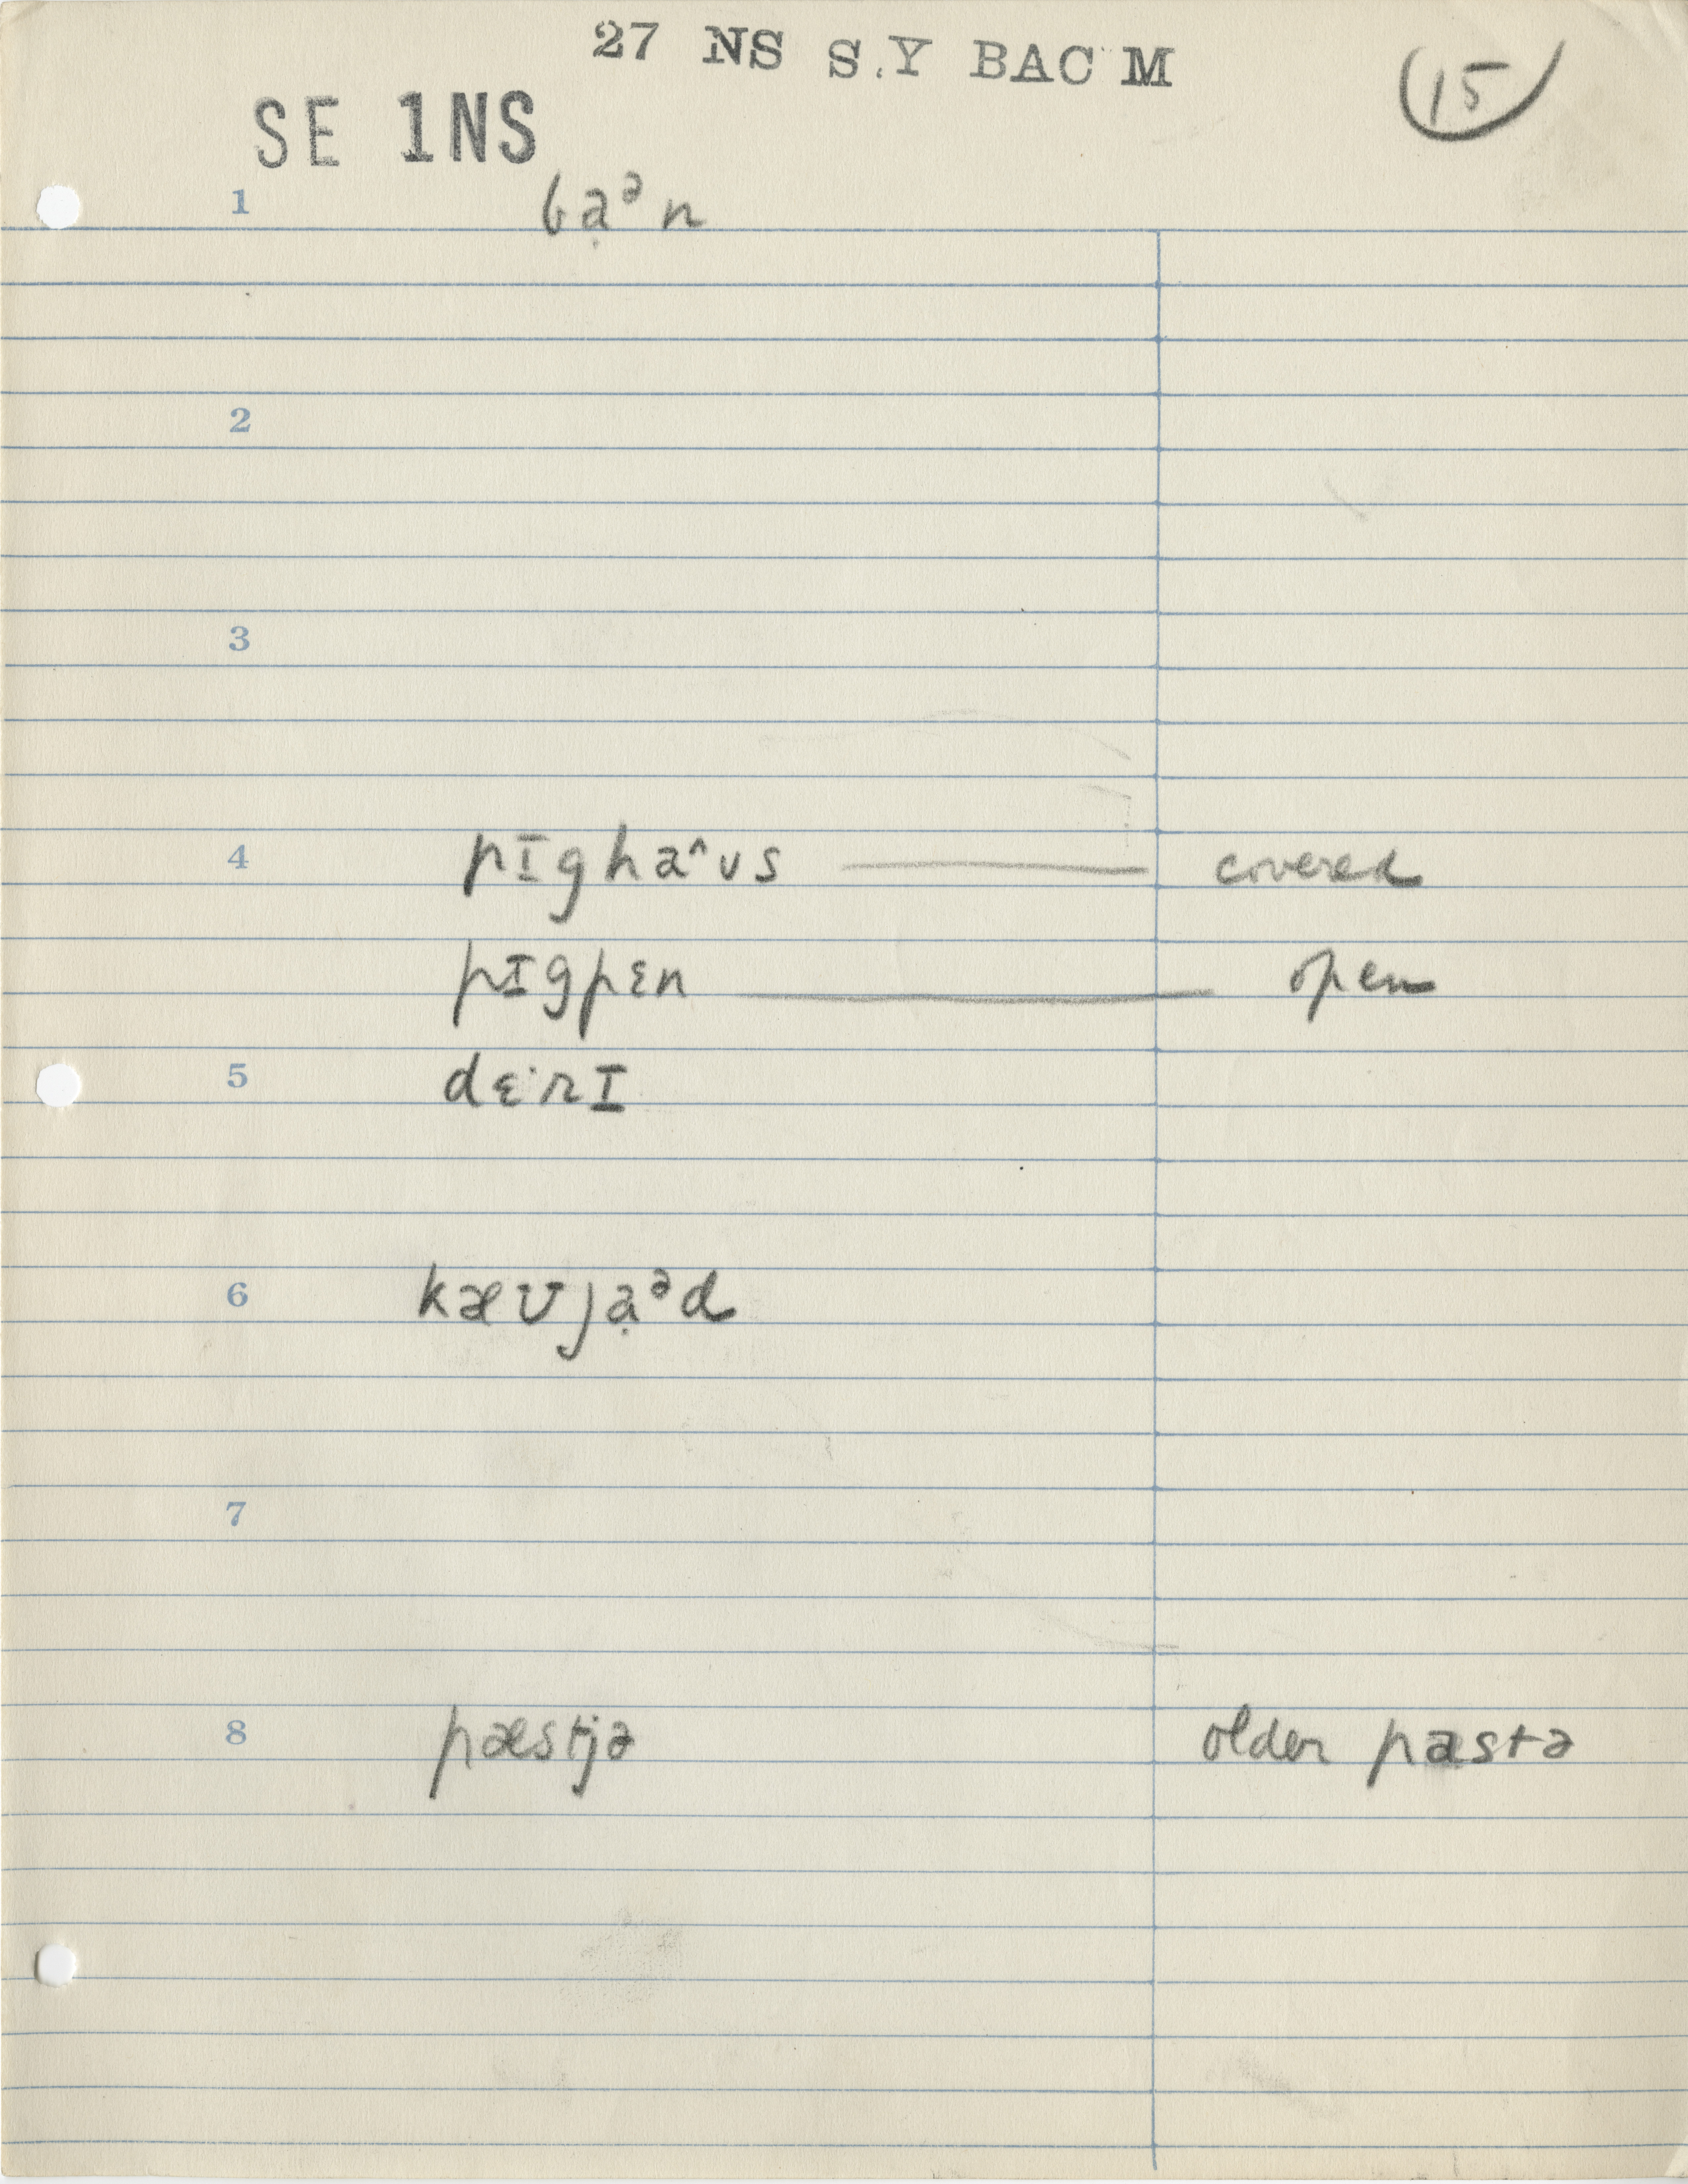 27 NS S.Y BAC M
15
SE 1NS
1 ba̤ᵊn
2
3
4 pɪghaˆʊs — covered
pɪgpɛn — open
5 dɛ·rɪ
6 kæʊja̤ᵊd
7
8 pæstjə older pastə